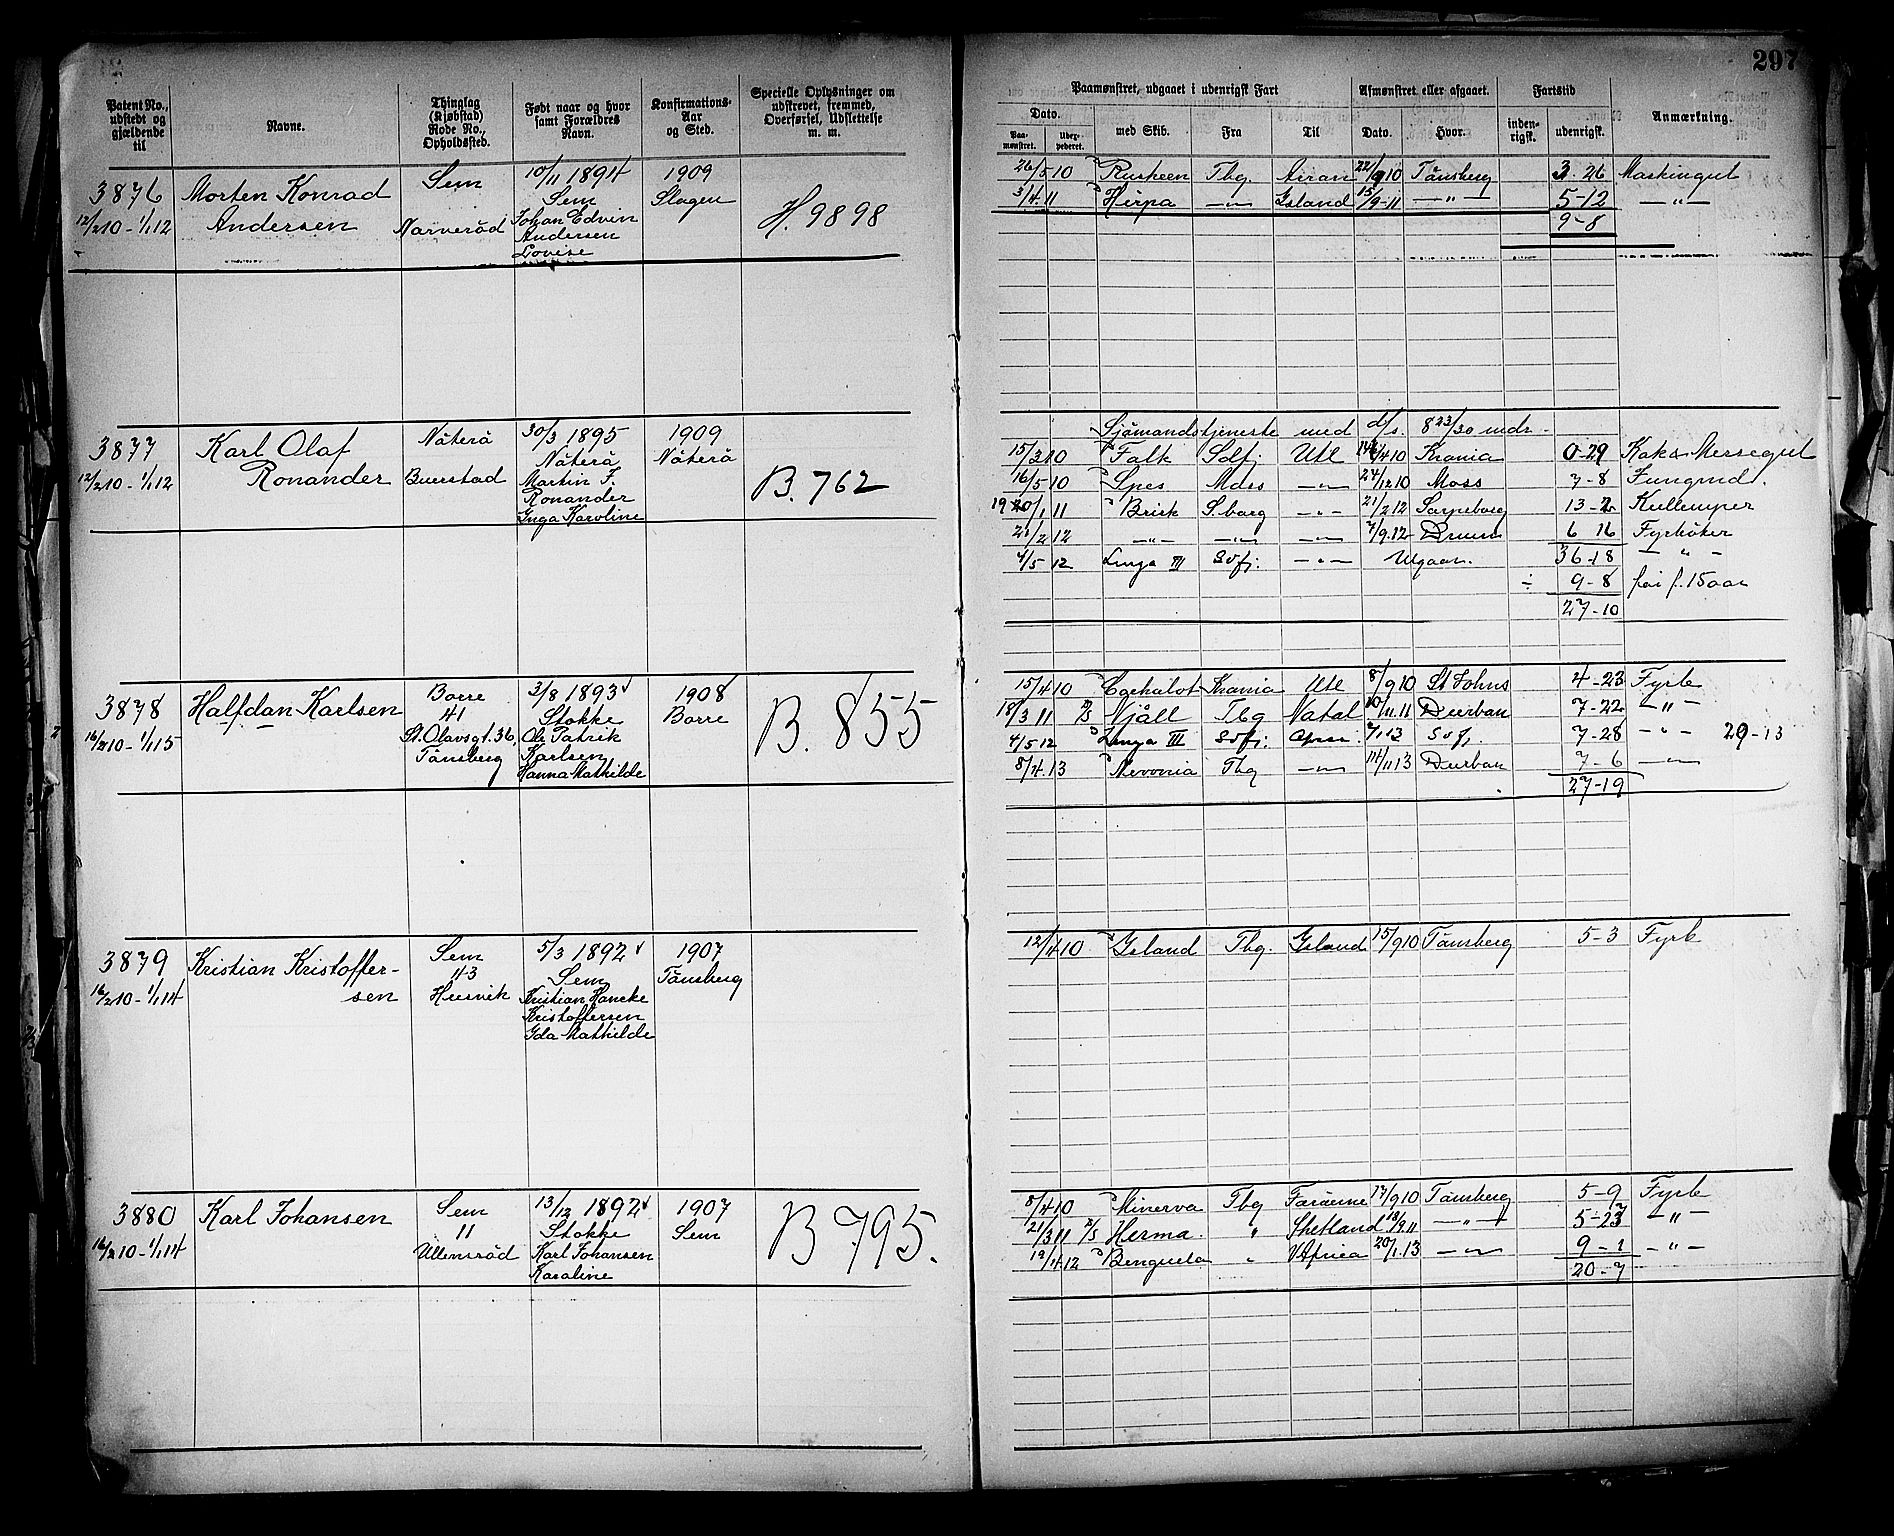 297
Patent No., udstedt og gjældende til
Navne.
Thinglag (Kjøbstad) Rode No., Opholdssted.
Født naar og hvor samt Forældres Navn.
Konfirmations-Aar og Sted.
Specielle Oplysninger om udskrevet, fremmed, Overførsel, Udslettelse m. m.
Paamønstret, udgaaet i udenrigsk Fart
Afmønstret eller afgaaet.
Fartstid
Anmærkning.
Dato.
Paa-mønstret.
med Skib.
Fra
Til
Dato.
Hvor.
inden-rigsk.
udenrigsk.
3876 Morten Konrad Sem 10/11 1894 1909
12/2 10 - 1/1 12 Andersen Narverød Sem Slagen H. 9898
Johan Edvin
Andersen
Lovise
26/5 10 Tbg. 22/9 10 Tønsberg 3-26 Maskingut
3/4 11 Herpa -"- Island 15/9-11 -"- 5-12 -"-
9-8
3877 Karl Olaf Nøterø 30/3 1895 1909
12/2 10 - 1/1 12 Ronander Buerstad Nøterø Nøterø B. 762
Martin F.
Ronander
Inga Karoline
Sjømandstjeneste med d/s. 8 23/30 mdr.
15/3 10 Falk Sdfj Utl 4/4 10 Krania 0-29 Koks Messegut
16/5 10 Spes Moss -"- 24/12 10 Moss 7-8 Jungmd.
20/1 11 Brisk S.borg -"- 21/2 12 Sarpsborg 13-2 Kullemper
21/2 12 -"- -"- -"- 7/9.12 6 16 Fyrbøter
4/5 12 III Sdfj. -"- Utgaar. 36-18 -"-
÷ 9-8 før f. 15 aar
27-10
3878 Halfdan Karlsen Borre 3/8 1893 1908
16/2 10 - 1/1 15 41 Stokke Borre B. 855
St. Olavsgt. 36, Ole Patrik
Tønsberg Karlsen
Hanna Mathilde
15/4 10 Krania Utl 8/9 10 St Johns 4-23 Fyrb
18/3 11 Njåll Tbg Natal 10/11.11 Durban 7-22 -"-
4/5 12 III Sdfj. 7/1 13 Sdfj. 7-28 -"- 29-13
8/4.13 Nevonia Tbg -"- 11/11 13 Durban 7-6 -"-
27-19
3879 Kristian Kristoffer- Sem 5/3 1892 1907
16/2 10 - 1/1 14 sen 43 Sem Tønsberg
Husvik Kristian Hancke
Kristoffersen
Ida Mathilde
12/4 10 Island Tbg. Island 15/9 10 Tønsberg 5-3 Fyrb
3880 Karl Johansen Sem 13/12 1892 1907
16/2 10 - 1/1 14 11 Stokke Sem B 795.
Ullensrød Karl Johansen
Karoline
8/4 10 Minerva Tbg Færøerne 17/9 10 Tønsberg 5-9 Fyrb
21/3 11 Herma. " Shetland 18/9 11 -"- 5-27 -"-
12/4 12 Benguela " V Africa 20/1.13 -"- 9-1 -"-
20-7